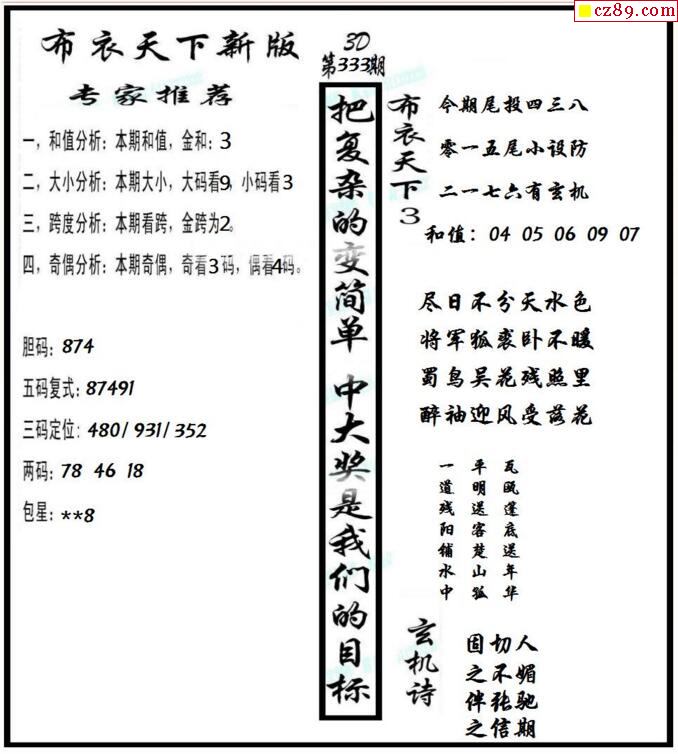 cz89.com
布衣天下新版
专家推荐
一，和值分析：本期和值，金和：3
二，大小分析：本期大小，大码看9，小码看3
三，跨度分析：本期看跨，金跨为2。
四，奇偶分析：本期奇偶，奇看3码，偶看4码。
胆码：874
五码复式：87491
三码定位：480/ 931/ 352
两码：78 46 18
包星：**8
3D
第333期
把复杂的变简单 中大奖是我们的目标
布衣天下3
今期尾投四三八
零一五尾小设防
二一七六有玄机
和值：04 05 06 09 07
尽日不分天水色
将军狐裘卧不暖
蜀鸟吴花残照里
醉袖迎风受落花
一道残阳铺水中
平明送客楚山孤
瓦瓯蓬底送年华
玄机诗
固切人
之不媚
伴张驰
之信期